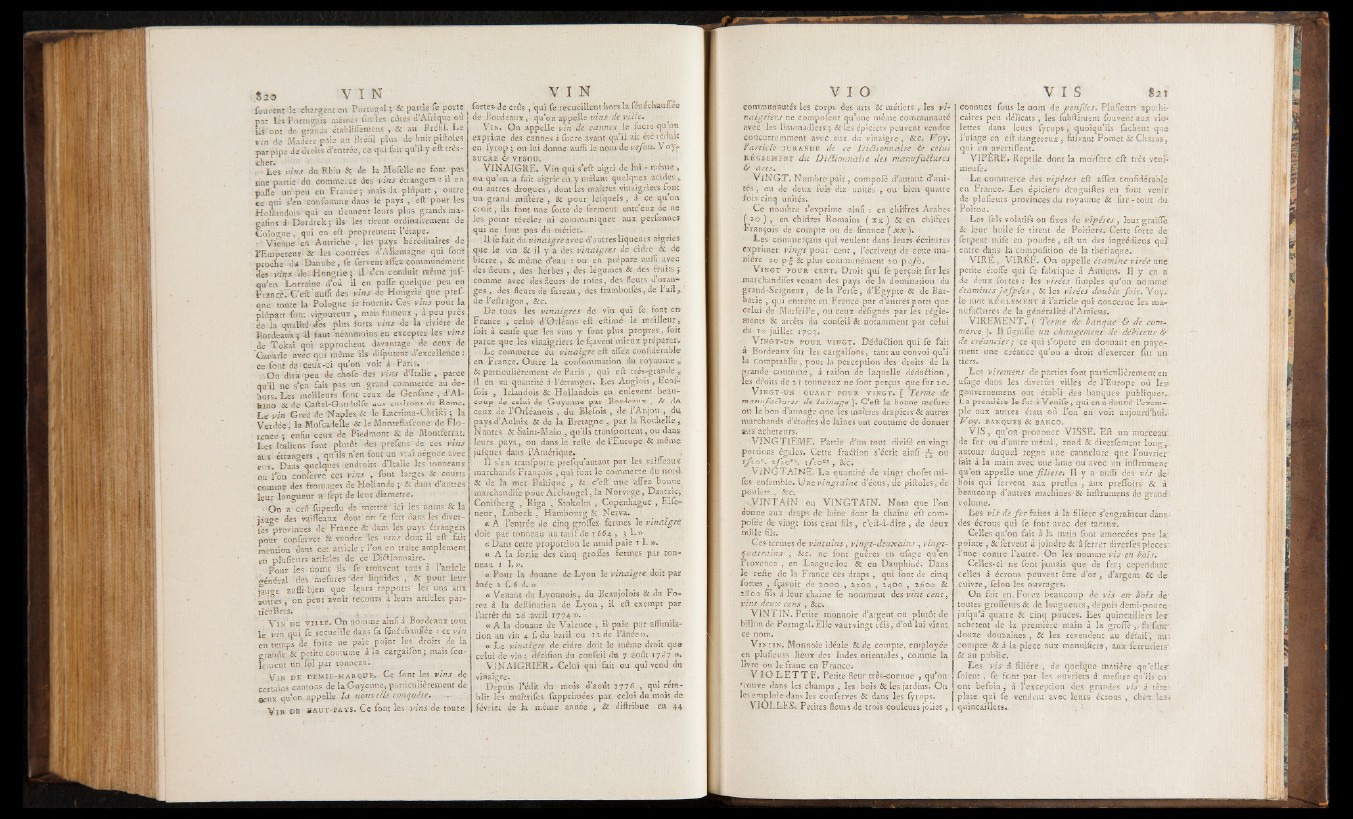 820 VIN
ſouvent le chargent en Portugal ; & partie ſe porte
par les Portugais mêmes ſur les côtes d'Afrique où
ils ont de grands établiſſemens , & au Breſil. Le
vin de Madere paie au Breſil plus de huit piſtoles
par pipe de droits d'entrée, ce qui fait qu'il y eſt très-
cher.
Les vins du Rhin & de la Moſelle ne font pas
une partie du commerce des vins étrangers : il en
paſſe un peu en France ; mais la plûpart , outre
ce qui s'en conſomme dans le pays , eſt pour les
Hollandois qui en tiennent leurs plus grands ma-
gaſins à Dordrek ; ils les tirent ordinairement de
Cologne , qui en eſt proprement l'étape.
Vienne en Autriche , les pays héréditaires de
l'Empereur & les contrées d'Allemagne qui ſont
proche du Danube , ſe ſervent aſſez communément
des vins de Hongrie ; il s'en conduit même juſ-
qu'en Lorraine d'où il en paſſe quelque peu en
France. C'eſt auſſi des vins de Hongrie que preſ-
que toute la Pologne ſe fournit. Ces vins pour la
plûpart ſont vigoureux , mais fumeux , à peu près
de la qualité des plus forts vins de la riviére de
Bordeaux ; il faut néanmoins en excepter les vins
de Tokai qui approchent davantage de ceux de
Canarie avec qui même ils diſputent d'excellence :
ce ſont de ceux-ci qu'on voit à Paris.
On dira peu de choſe des vins d'Italie , parce
qu'il ne s'en fait pas un grand commerce au de-
hors. Les meilleurs ſont ceux de Genſane , d'Al-
bano & de Caſtel-Gandolfe aux environs de Rome.
Le vin Grec de Naples & le Lacrima-Chriſti ; la
Verdée, la Moſcadelle & le Montefiaſcone de Flo-
rence ; enfin ceux de Piedmont & de Montferrat.
Les Italiens font plutôt des preſens de ces vins
aux étrangers , qu'ils n'en font un vrai négoce avec
eux. Dans quelques endroits d'Italie les tonneaux
où l'on conſerve ces vins , ſont larges & courts
comme des fromages de Hollande ; & dans d'autres
leur longueur a ſept de leur diametre.
On a cru ſuperflu de mettre ici les noms & la
jauge des vaiſſeaux dont on ſe ſert dans les diver-
ſes provinces de France & dans les pays étrangers
pour conſerver & vendre les vins dont il eſt fait
mention dans cet article ; l'on en traite amplement
en pluſieurs articles de ce Dictionnaire.
Pour les noms ils ſe trouvent tous à l'article
général des meſures des liquides , & pour leur
jauge auſſi-bien que leurs rapports les uns aux
autres , on peut avoir recours à leurs articles par-
ticuliers.
VIN DE VILLE. On nomme ainſi à Bordeaux tout
le vin qui ſe recueille dans ſa ſénéchauſſée : ce vin
en temps de foire ne paie point les droits de la
grande & petite coutume à la cargaiſon ; mais ſeu-
lement un ſol par tonneau.
VIN DE DEMIE-MARQUE. Ce ſont les vins de
certains cantons de la Guyenne, particuliérement de
ceux qu'on appelle la nouvelle conquête.
VIN DE HAUT-PAYS. Ce ſont les vins de toute
VIN
ſortes de crûs , qui ſe recueillent hors la ſénéchauſſée
de Bordeaux , qu'on appelle vins de ville.
VIN. On appelle vin de cannes le ſucre qu'on
exprime des cannes à ſucre avant qu'il ait été réduit
en ſyrop ; on lui donne auſſi le nom de veſou. Voy.
SUCRE & VESOU.
VINAIGRE. Vin qui s'eſt aigri de lui-même ,
ou qu'on a fait aigrir en y mêlant quelques acides ,
ou autres drogues , dont les maîtres vinaigriers font
un grand miſtère , & pour leſquels , à ce qu'on
croit , ils font une ſorte de ſerment entr'eux de ne
les point révéler ni communiquer aux perſonnes
qui ne ſont pas du métier.
Il ſe fait du vinaigre avec d'autres liqueurs aigries
que le vin & il y a des vinaigres de cidre & de
bierre , & même d'eau : on en prépare auſſi avec
des fleurs , des herbes , des légumes & des fruits ;
comme avec des fleurs de roſes, des fleurs d'oran-
ges , des fleurs de ſureau , des framboiſes , de l'ail ,
de l'eſtragon , &c.
De tous les vinaigres de vin qui ſe font en
France , celui d'Orléans eſt eſtimé le meilleur,
ſoit à cauſe que les vins y ſont plus propres , ſoit
parce que les vinaigriers le ſçavent mieux préparer.
Le commerce du vinaigre eſt aſſez conſidérable
en France. Outre la conſommation du royaume ,
& particulièrement de Paris , qui eſt très-grande ,
il en va quantité à l'étranger. Les Anglois , Ecoſ-
ſois , Irlandois & Hollandois en enlevent beau-
coup de celui de Guyenne par Bordeaux , & de
ceux de l'Orléanois , du Bleſois , de l'Anjou , du
pays d'Aulnix & de la Bretagne , par la Rochelle,
Nantes & Saint-Malo , qu'ils tranſportent, ou dans
leurs pays , ou dans le reſte de l'Europe & même
juſques dans l'Amérique.
Il s'en tranſporte preſqu'autant par les vaiſſeaux
marchands François , qui font le commerce du nord
& de la mer Baltique , & c'eſt une aſſez bonne
marchandiſe pour Archangel, la Norvege, Dantzic,
Conisberg , Riga , Stokolm , Copenhague , Elſe-
neur , Lubeck , Hambourg & Nerva.
« A l'entrée de cinq groſſes fermes le vinaigre
doit par tonneau au tarif de 1664 , 3 l. »
« Dans cette proportion le muid paie 1 l. ».
« A la ſortie des cinq groſſes fermes par ton-
neau 1 l. ».
« Pour la douane de Lyon le vinaigre doit par
ânée 2 ſ. 6 d. »
« Venant du Lyonnois, du Beaujolois & du Fo-
rez à la deſtination de Lyon , il eſt exempt par
l'arrêt du 26 avril 1774 ».
« A la douane de Valence , il paie par aſſimila-
tion au vin 4 ſ. du baril ou 12 de l'ânée ».
« Le vinaigre de cidre doit le même droit que
celui de vin ; déciſion du conſeil du 7 août 1757 ».
VINAIGRIER. Celui qui fait ou qui vend du
vinaigre.
Depuis l'édit du mois d'août 1776 , qui réta-
blit les maîtriſes ſupprimées par celui du mois de
février de la même année , & diſtribue en 44
VIO
communautés les corps des arts & métiers , les vi-
naigriers ne compoſent qu'une même communauté
avec les limonadiers ; & les épiciers peuvent vendre
concurremment avec eux du vinaigre , &c. Voy.
l'article JURANDE de ce Dictionnaire & celui
RÉGLEMENT du Dictionnaire des manufactures
& arts.
VINGT. Nombre pair , compoſé d'autant d'uni-
tés , ou de deux fois dix unités , ou bien quatre
fois cinq unités.
Ce nombre s'exprime ainſi : en chiffres Arabes
(20) , en chiffres Romains (XX) & en chiffres
François de compte ou de finance (xx).
Les commerçans qui veulent dans leurs écritures
exprimer vingt pour cent , l'écrivent de cette ma-
nière 20 p° & plus communément 20 p%.
VINGT POUR CENT. Droit qui ſe perçoit ſur les
marchandiſes venant des pays de la domination du
grand-Seigneur , de la Perſe , d'Egypte & de Bar-
barie , qui entrent en France par d'autres ports que
celui de Marſeille, ou ceux déſignés par les régle-
ments & arrêts du conſeil & notamment par celui
du 10 juillet 1703.
VINGT-UN POUR VINGT. Déduction qui ſe fait
à Bordeaux ſur les cargaiſons, tant au convoi qu'à
la comptablie, pour la perception des droits de la
grande coutume , à raiſon de laquelle déduction ,
les droits de 21 tonneaux ne ſont perçus que ſur 20.
VINGT-UN QUART POUR VINGT. [ Terme de
manufactures de lainage ]. C'eſt la bonne meſure
ou le bon d'aunage que les maîtres drapiers & autres
marchands d'étoffes de laines ont coutume de donner
aux acheteurs.
VINGTIEME. Partie d'un tout diviſé en vingt
portions égales. Cette fraction s'écrit ainſi 1/20 ou
1/20e. 2/20es. 1/20es , &c.
VINGTAINE. La quantité de vingt choſes mi-
ſes enſemble. Une vingtaine d'écus, de piſtoles, de
poulets , &c.
VINTAIN ou VINGTAIN. Nom que l'on
donne aux draps de laine dont la chaîne eſt com-
poſée de vingt fois cent fils , c'eſt-à-dire , de deux
mille fils.
Ces termes de vintains , vingt-deuxains , vingt-
quatrains , &c. ne ſont guères en uſage qu'en
Provence , en Languedoc & en Dauphiné. Dans
le reſte de la France ces draps , qui ſont de cinq
ſortes , ſçavoir de 2000 , 2200 , 2400 , 2600 &
2800 fils à leur chaîne ſe nomment des vint cent ,
vint-deux cens , &c.
VINTIN. Petite monnoie d'argent ou plutôt de
billon de Portugal. Elle vaut vingt réis, d'où lui vient
ce nom.
VINTIN. Monnoie idéale & de compte, employée
en pluſieurs lieux des Indes orientales , comme la
livre ou le franc en France.
VIOLETTE. Petite fleur très-connue , qu'on
trouve dans les champs , les bois & les jardins. On
les emploie dans les conſerves & dans les ſyrops.
VIOLLES. Petites fleurs de trois couleurs jolies ,
VIS 821
connues ſous le nom de penſées. Pluſieurs apothi-
caires peu délicats , les ſubſtituent ſouvent aux vio-
lettes dans leurs ſyrops , quoiqu'ils ſachent que
l'uſage en eſt dangereux , ſuivant Pomet & Charas,
qui en avertiſſent.
VIPÈRE. Reptile dont la morſure eſt très veni-
meuſe.
Le commerce des vipères eſt aſſez conſidérable
en France. Les épiciers droguiſtes en font venir
de pluſieurs provinces du royaume & ſur-tout du
Poitou.
Les ſels volatils ou fixes de vipères , leur graiſſe
& leur huile ſe tirent de Poitiers. Cette ſorte de
ſerpent miſe en poudre , eſt un des ingrédiens qui
entre dans la compoſition de la thériaque.
VIRÉ , VIRÉE. On appelle étamine virée une
petite étoffe qui ſe fabrique à Amiens. Il y en a
de deux ſortes : les virées ſimples qu'on nomme
étamines jaſpées , & les virées double ſoie. Voyez
le mot RÉGLEMENT à l'article qui concerne les ma-
nufactures de la généralité d'Amiens.
VIREMENT. ( Terme de banque & de com-
merce ). Il ſignifie un changement de débiteur &
de créancier ; ce qui s'opère en donnant en paye-
ment une créance qu'on a droit d'exercer ſur un
tiers.
Les viremens de parties ſont particulièrement en
uſage dans les diverſes villes de l'Europe où les
gouvernemens ont établi des banques publiques.
La première le fut à Veniſe , qui en a donné l'exem-
ple aux autres états où l'on en voit aujourd'hui.
Voy. BANQUES & BANCO.
VIS , qu'on prononce VISSE. Eſt un morceau
de fer ou d'autre métal , rond & diverſement long ,
autour duquel regne une cannelure que l'ouvrier
fait à la main avec une lime ou avec un inſtrument
qu'on appelle une filière. Il y a auſſi des vis de
bois qui ſervent aux preſſes , aux preſſoirs & à
beaucoup d'autres machines & inſtrumens de grand
volume.
Les vis de fer faites à la filière s'engraînent dans
des écrous qui ſe font avec des taraux.
Celles qu'on fait à la main ſont amorcées par la
pointe , & ſervent à joindre & à ſerrer diverſes pieces
l'une contre l'autre. On les nomme vis en bois.
Celles-ci ne ſont jamais que de fer ; cependant
celles à écrous peuvent être d'or , d'argent & de
cuivre, ſelon les ouvrages.
On fait en Forez beaucoup de vis en bois de
toutes groſſeurs & de longueurs, depuis demi-pouce
juſqu'à quatre & cinq pouces. Les quincaillers les
achetent de la première main à la groſſe , faiſant
douze douzaines , & les revendent au détail , au
compte & à la piece aux menuiſiers , aux ſerruriers
& au public.
Les vis à filière , de quelque matière qu'elles
ſoient , ſe font par les ouvriers à meſure qu'ils en
ont beſoin , à l'exception des grandes vis à tête
plate qui ſe vendent avec leurs écrous , chez les
quincaillers.